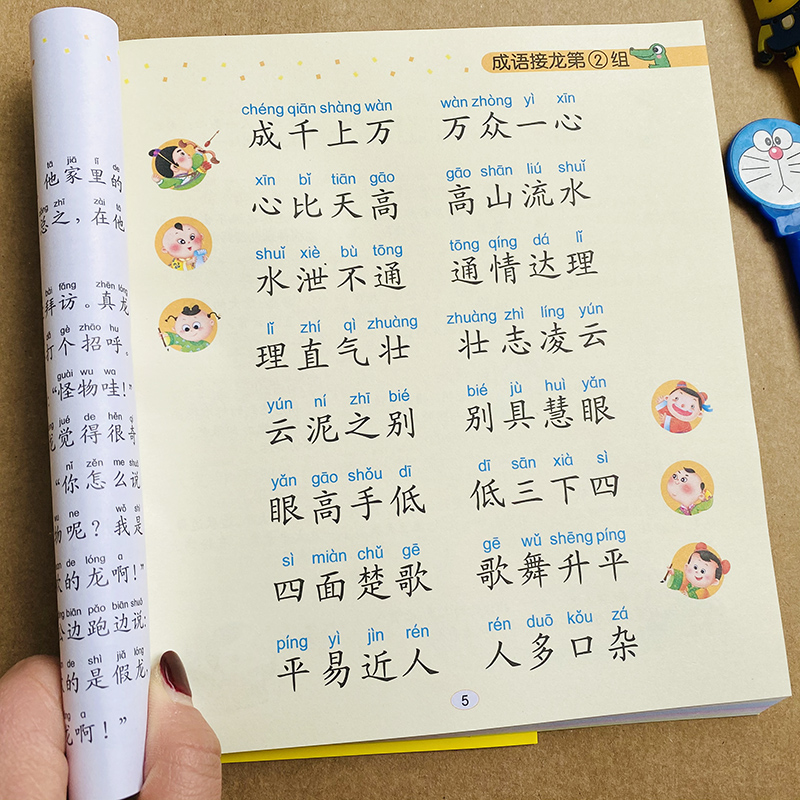 tā jiā lǐ de
他家里的
zhī zài tā
总之，在他
bài fāng zhēn lóng
拜访。真龙
gè zhāo hu
打个招呼。
guài wu wa
“怪物哇！”
jué de hěn qí
觉得很奇
nǐ zěn me shuō
“你怎么说
wu ne wǒ shì
物呢？我是
de lóng a
的龙啊！”
biān pǎo biān shuō
边跑边说：
de shì jiǎ lóng
的是假龙，
a
龙啊！”
成语接龙第②组
chéng qiān shàng wàn wàn zhòng yì xīn
成千上万 万众一心
xīn bǐ tiān gāo gāo shān liú shuǐ
心比天高 高山流水
shuǐ xiè bù tōng tōng qíng dá lǐ
水泄不通 通情达理
lǐ zhí qì zhuàng zhuàng zhì líng yún
理直气壮 壮志凌云
yún ní zhī bié bié jù huì yǎn
云泥之别 别具慧眼
yǎn gāo shǒu dī dī sān xià sì
眼高手低 低三下四
sì miàn chǔ gē gē wǔ shēng píng
四面楚歌 歌舞升平
píng yì jìn rén rén duō kǒu zá
平易近人 人多口杂
5